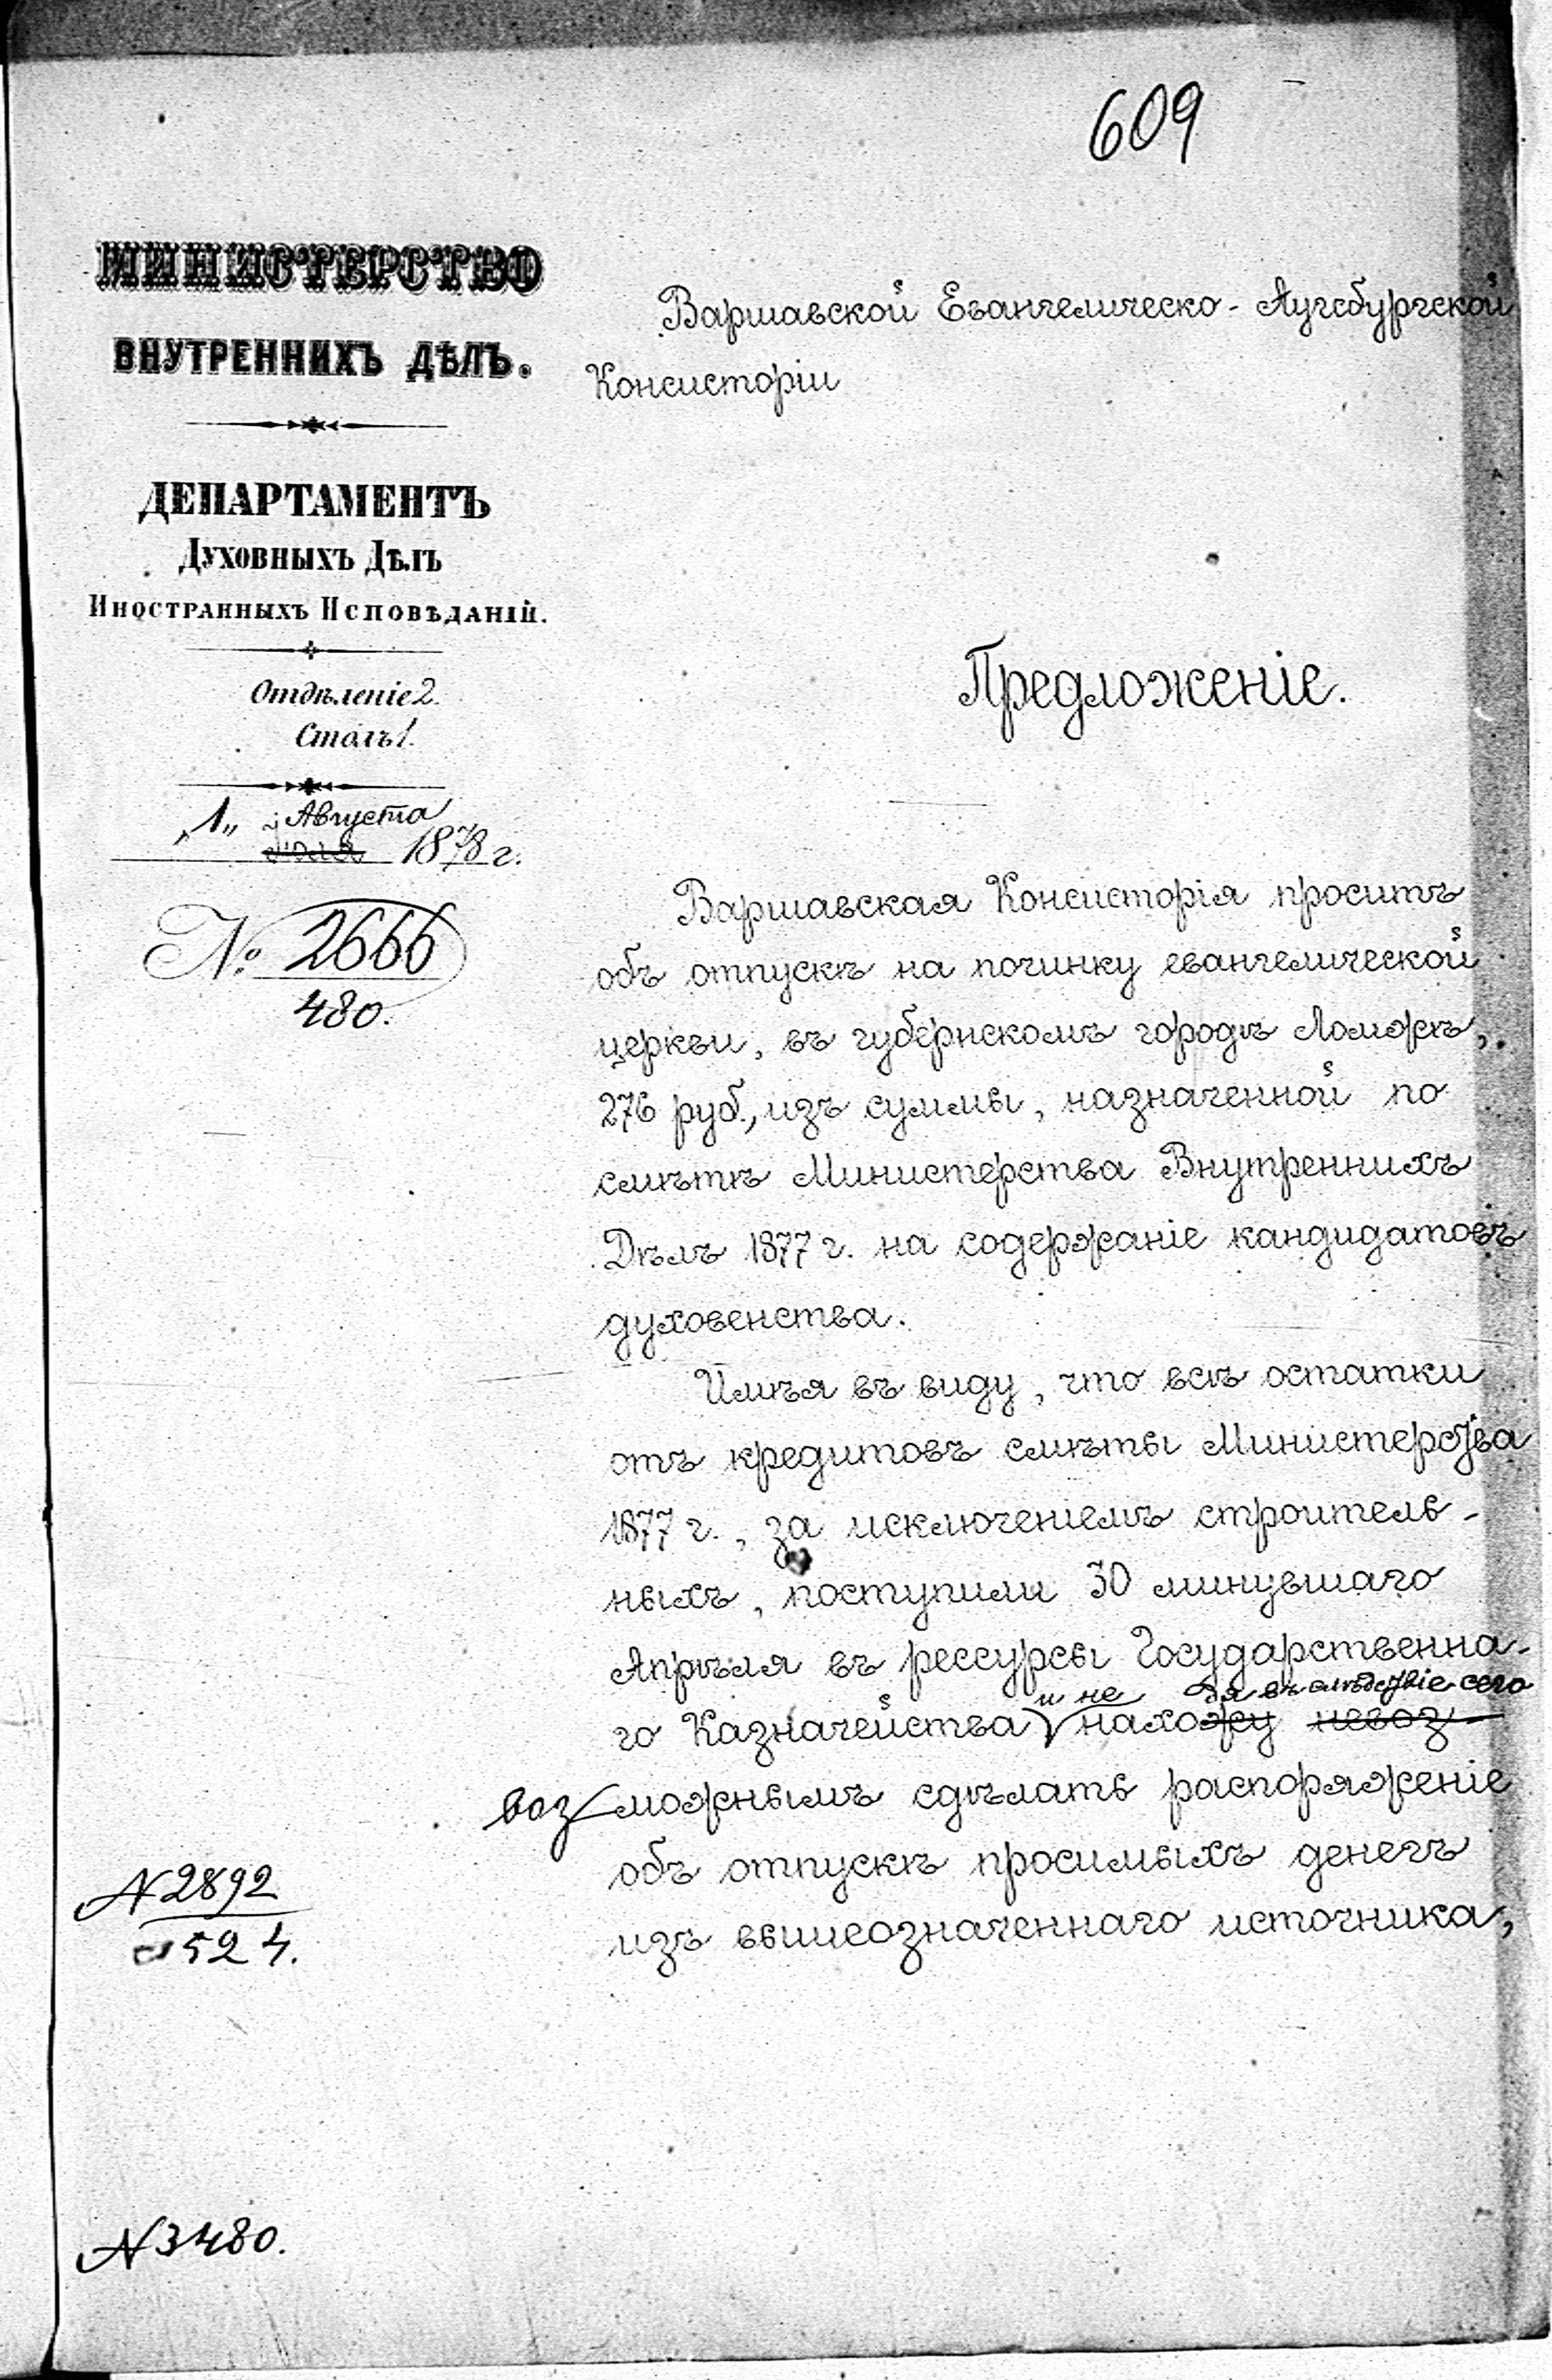 609
МИНИСТЕРСТВО
ВНУТРЕННИХЪ ДѢЛЪ.
ДЕПАРТАМЕНТЪ
ДУХОВНЫХЪ ДѢЛЪ
ИНОСТРАННЫХЪ ИСПОВѢДАНІЙ.
Отдѣленіе 2.
Столъ 1.
„1„ Августа
Іюля 1878 г.
№ 2666
480.
Варшавской Евангелическо-Аугсбургской
Консисторіи
Предложеніе.
Варшавская Консисторія проситъ
объ отпускѣ на починку евангелической
церкви, въ губернскомъ городѣ Ломжѣ,
276 руб., изъ суммы, назначенной по
смѣтѣ Министерства Внутреннихъ
Дѣлъ 1877 г. на содержаніе кандидатовъ
духовенства.
Имѣя въ виду, что всѣ остатки
отъ кредитовъ смѣты Министерства
1877 г., за исключеніемъ строитель-
ныхъ, поступили 30 минувшаго
Апрѣля въ рессурсы Государственна-
и не дя въ слѣдствіе сего
го Казначейства нахожу невоз-
воз можнымъ сдѣлать распоряженіе
объ отпускѣ просимыхъ денегъ
изъ вышеозначеннаго источника,
N 2892
524.
N 3480.